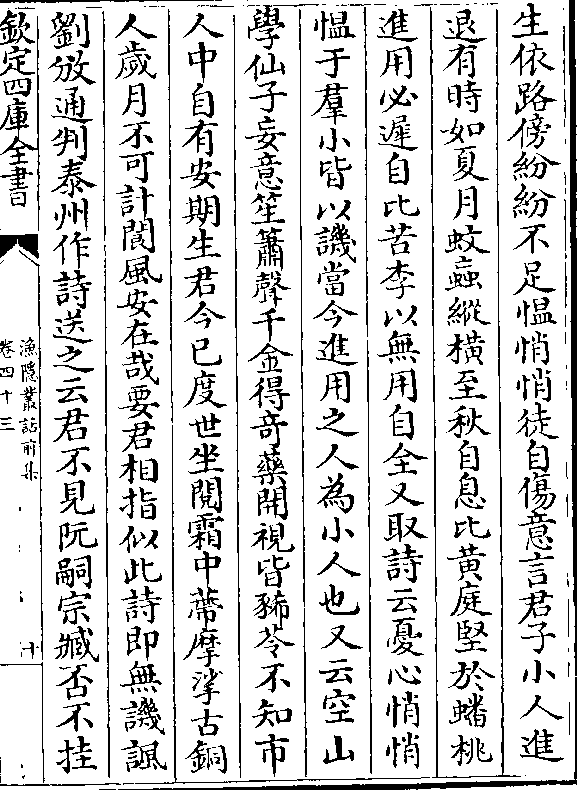 生依路傍紛紛不足愠悄悄徒自傷意言君子小人進
退有時如夏月蚊蝱縱橫至秋自息比黃庭堅於蟠桃
進用必遲自比苦李以無用自全又取詩云憂心悄悄
愠于羣小皆以譏當今進用之人為小人也又云空山
學仙子妄意笙簫聲千金得竒藥開視皆豨苓不知市
人中自有安期生君今已度世坐閱霜中蔕摩挲古銅
人歲月不可計閬風安在哉要君相指似此詩即無譏諷
劉攽通判泰州作詩送之云君不見阮嗣宗臧否不挂
欽定四庫全書
漁隱叢話前集
卷四十三
十